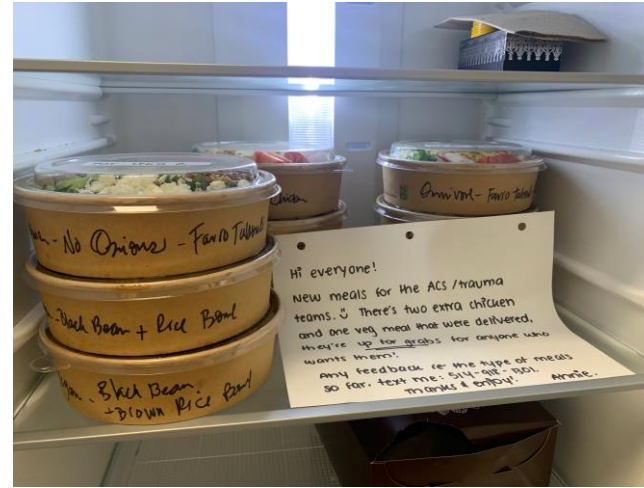 - No Onions - Farro Tabouli
- Black Bean + Rice Bowl
Black Bean
+ Brown Rice Bowl
Omnivore - Farro
Hi everyone!
New meals for the ACS/trauma
teams. There's two extra chicken
and one veg meal that were delivered,
they're up for grabs for anyone who
wants them!
Any feedback re the type of meals
so far, text me: 514-918-1301.
Thanks & enjoy!
Annie.